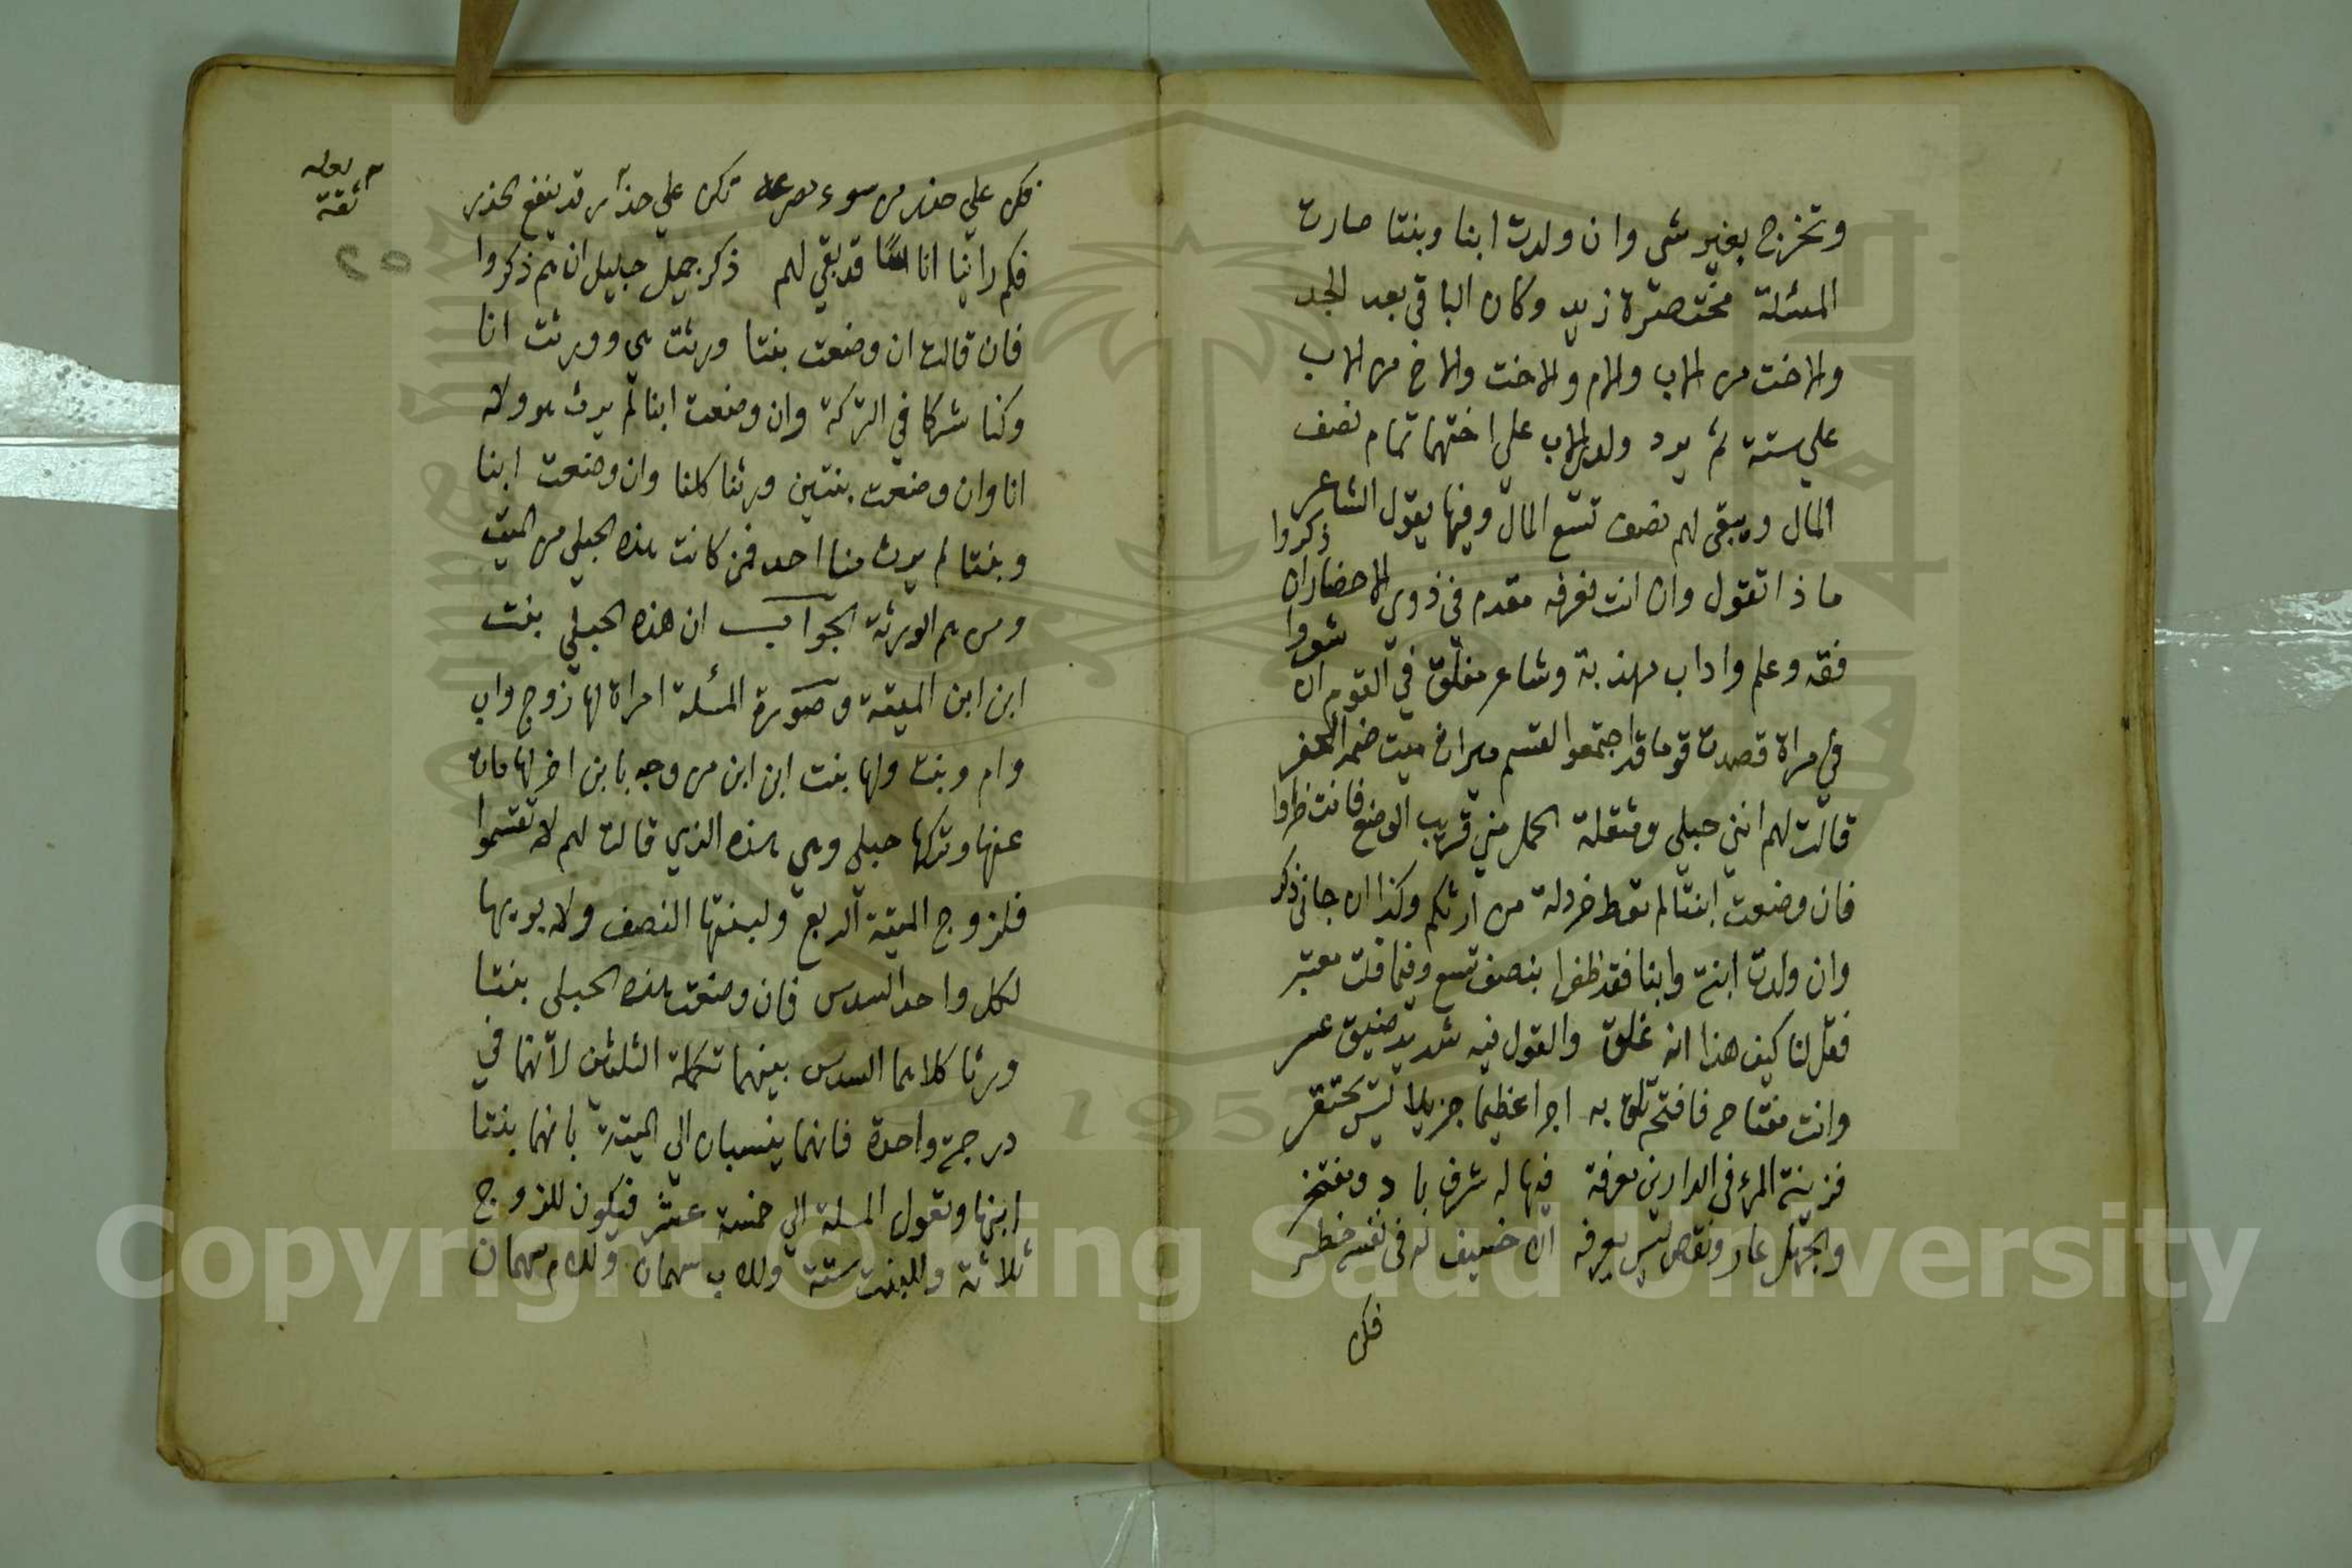 وتخرج بغير شي وان ولدت ابنا وبنتا صارت
المسئلة مختصرة زيد وكان الباقي بعد الجد
والاخت من الاب والام والاخت والاخ من الاب
علي ستة ثم يرد ولد الاب علي اختهما تمام نصف
المال ويبقى لهم نصف تسع المال وفيها يقول الشاعر
ماذا تقول وان انت نعرفه مقدم في ذوي الاحضاران ذكروا
فقه وعلم واداب مهذبة وشاعر مفلق في القوم ان شعروا
في مراة قصدت قوما قد اجتمعوا لقسم ميراث ميت ضمه الحفر
قالت لهم انني حبلي ومثقلة الحمل مني قريب الوضع فانتظروا
فان وضعت ابنتا لم تعط خردلة من ارثكم وكذا ان جاني ذكر
وان ولدت ابنة وابنا فقد ظفرا بنصف تسع وفيما قلت معتبر
فقل لنا كيف هذا انه غلق والقول فيه شديد ضيق عسر
وانت مفتاح فافتح تلق به اجرا عظيما جزيلا ليس يحتقر
فزينة المرء في الدارين معرفة فيها له شرف باد ومفتخر
والجهل عار ونقص ليس يعرفه الا خسيف له في نفسه خطر
فكن
فكن علي حذر من سوء تكن علي حذر قد ينفع الحذر
فكم راينا اناسا قد بقي لهم ذكر جميل جليل ان هم ذكروا
فان قالت ان وضعت بنتا ورثت هي وورثت انا
وكنا شركا في التركة وان وضعت ابنا لم يرث هو ولا
انا وان وضعت بنتين ورثنا كلنا وان وضعت ابنا
وبنتا لم يرث منا احد فمن كانت هذه الحبلي من الميت
ومن هم الورثة الجواب ان هذه الحبلي بنت
ابن ابن الميتة وصورة المسلة امراة لها زوج واب
وام وبنت ولها بنت ابن ابن مزوجه بابن اخر لها مات
عنها وتركها حبلي وهي هذه الذي قالت لهم لا تقتسموا
فلزوج الميتة الربع ولبنتها النصف ولابويها
لكل واحد السدس فان وضعت هذه الحبلي بنتا
ورثا كلاهما السدس بينهما تكملة الثلثين لانهما في
درجة واحدة فانهما ينسبان الي الميتة بانهما بنتا
ابنها وتعول المسلة الي خمسة عشر فيكون للزوج
ثلاثة وللبنت ستة وللاب سهمان وللام سهمان
ثقة
٢٥
Copyright © King Saud University
1957